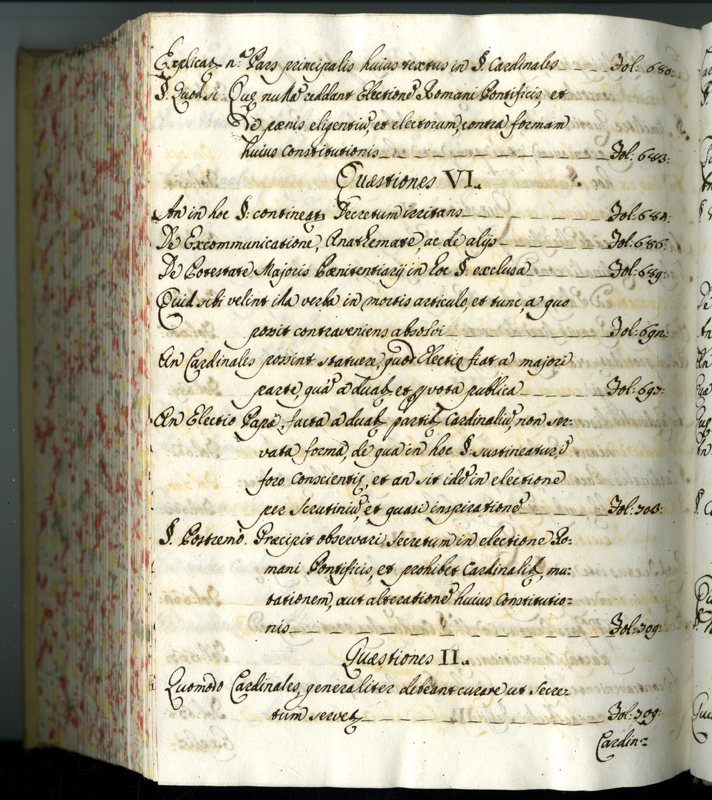 Explicat. n.ᵉ Pars principalis huius textus in §. Cardinales ___ Fol: 680:
§. Quod si. Quę nullã reddant Electionẽ Romani Pontificis, et
De pœnis eligentiũ, et electorum, contra formam
huius constitutionis ___ Fol: 683:
Quæstiones VI.
An in hoc §. contineat. Decretum irritans ___ Fol: 684:
De Excommunicatione, Anathemate, ac de alijs ___ Fol: 686:
De Potestate Majoris Pœnitentiarij in hoc §. exclusa ___ Fol: 689:
Quid sibi velint illa verba in mortis articulo, et tunc a quo
possit contraveniens absolvi ___ Fol: 692:
An Cardinales possint statuere, quod Electio fiat a majori
parte, quã a duab. et p vota publica ___ Fol: 697:
An Electio Papæ, facta a duab. partib. Cardinaliũ, non ser-
vata formâ, de qua in hoc §. sustineatur, ĩ
foro conscientię, et an sit idẽ in electione
per scrutiniũ, et quasi inspirationẽ ___ Fol: 703:
§. Postremo. Præcipit observari secretum in electione Ro=
mani Pontificis, et prohibet Cardinalib. mu=
tationem, aut alterationẽ huius Constitutio=
nis ___ Fol: 709:
Quæstiones II.
Quomodo Cardinales, generaliter debeant curare ut Secre=
tum servet. ___ Fol: 709:
Cardin=